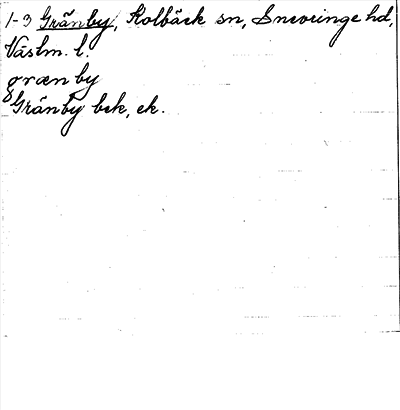 1-3 Gränby, Kolbäck sn, Snevringe hd,
Västm. l.
græn by
Gränby bek, ek.